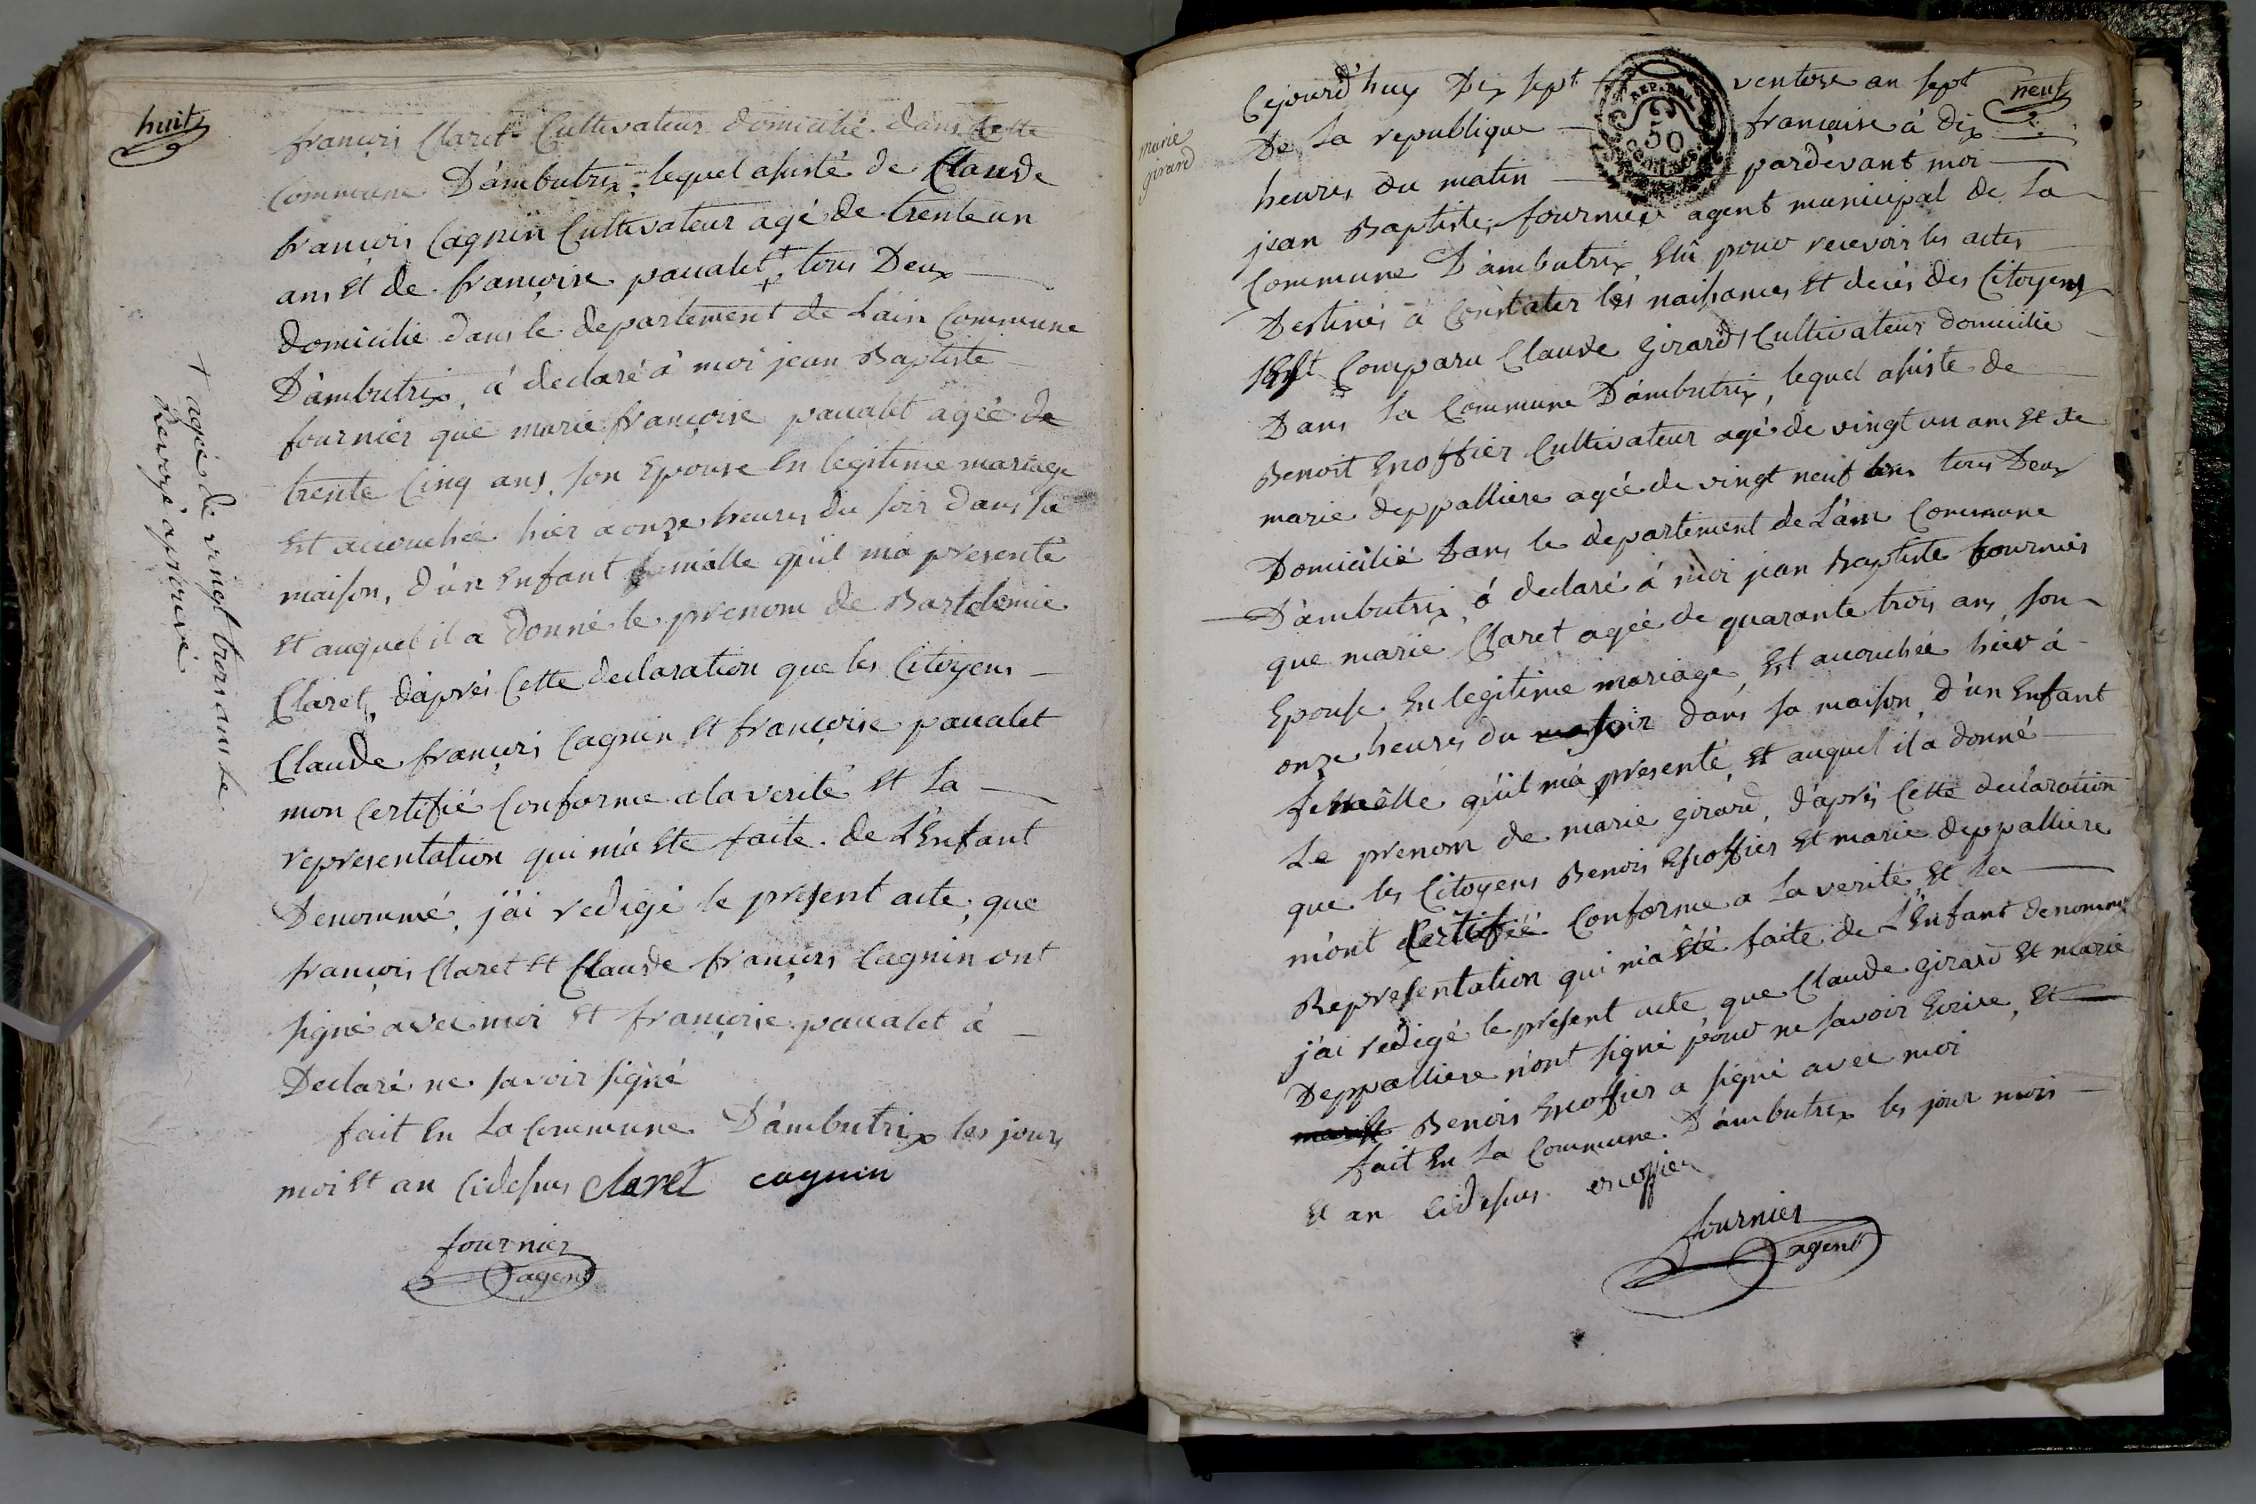 huit
françois Claret Cultivateur domicilié dans Cette
Commune D'ambutrix, lequel asisté de Claude
françois Cagnin Cultivateur agé de trente un
ans Et de françoise pavalet + tous Deux
domicilie dans le departement de Lain Commune
D'ambutrix, á declaré á moi jean Baptiste
fournier que marie françoise pavalet agée de
trente Cinq ans, son Epouse En legitime mariage
Est accouchée hier a onze heures du soir dans sa
maison, d'un Enfant malle qu'il má presenté
Et auquel il a donné le prenom de Bartelemie
Claret, d'après Cette declaration que les Citoyens
Claude françois Cagnin Et françoise pavalet
mon Certifié Conforme a la verité Et la
representation qui m'á Eté faite de L'Enfant
Denommé, j'ai redigé le present acte, que
françois Claret Et Claude françois Cagnin ont
signé avec moi Et françoise pavalet á
Declaré ne savoir signé
fait En La Commune D'ambutrix les jours
moi Et an Cidesus Claret cagnin
fournier
agent
+ agée de vingt trois ans le
Renvoyé aprouvé
neuf
marie
girard
Cejourd'huy Dix sept ventose an sept
De La republique française á dix
heures du matin pardevant moi
REP. FRA.
50
CENTIMES
jean Baptiste fournier agent municipal de La
Commune D'ambutrix, Elû pour recevoir les actes
Destinés á Constater les naisances Et decés des Citoyens
Est Comparu Claude Girard Cultivateur domicilie
Dans La Commune D'ambutrix, lequel asiste de
Benoit Escoffier Cultivateur agé de vingt un ans Et de
marie deppalliere agée de vingt neuf ans tous Deux
Domicilié Dans le departement de L'ain Commune
D'ambutrix, á declaré á moi jean Baptiste fournier
que marie Claret agée de quarante trois ans, son
Epouse En legitime mariage, Est accouchée hier á
onze heures du soir dans sa maison, d'un Enfant
femelle qu'il m'á presenté, Et auquel il a donné
Le prenom de marie girard, d'après Cette declaration
que les Citoyens Benois Escoffier Et marie deppalliere
m'ont Certifié Conforme a La verité, Et La
Representation qui m'á Eté faite de L'Enfant denommé
j'ai redigé le present acte que Claude girard Et marie
Deppalliere n'ont signé pour ne savoir Ecrire, Et
Benois Escoffier a signé avec moi
fait En La Commune D'ambutrix les jour mois
Et an Cidesus escoffier
fournier
agent